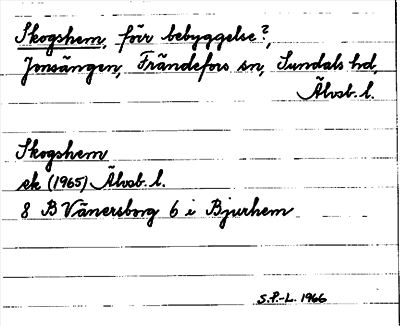 Skogshem, förr bebyggelse?,
Jonsängen, Frändefors sn, Sundals hd,
Älvsb. l.
Skogshem
ek (1965) Älvsb. l.
8 B Vänersborg 6 i Bjurhem
S.P.-L. 1966